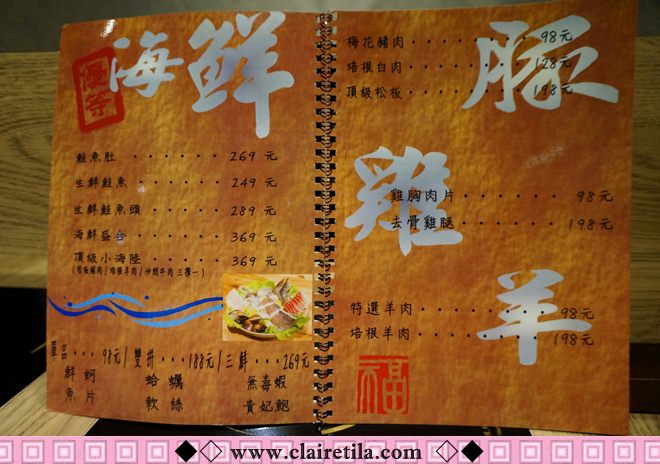 優等
海鮮
鮭魚肚 · · · · · · 269 元
生鮮鮭魚 · · · · · 249 元
生鮮鮭魚頭 · · · · 289 元
海鮮盛合 · · · · · 369 元
頂級小海陸 · · · · 369 元
98元/雙拼 · · · 188元/三鮮 · · · 269元
鮮魚片
蚵
蛤
蠣
軟絲
無毒蝦
貴妃鮑
豚
梅花豬肉 · · · · · · · · 98元
培根白肉 · · · · · · · · 128元
頂級松板 · · · · · · · · 198元
雞
雞胸肉片 · · · · · · · · 98元
去骨雞腿 · · · · · · · · 198元
羊
特選羊肉 · · · · · · · · 98元
培根羊肉 · · · · · · · · 198元
福
www.clairetila.com